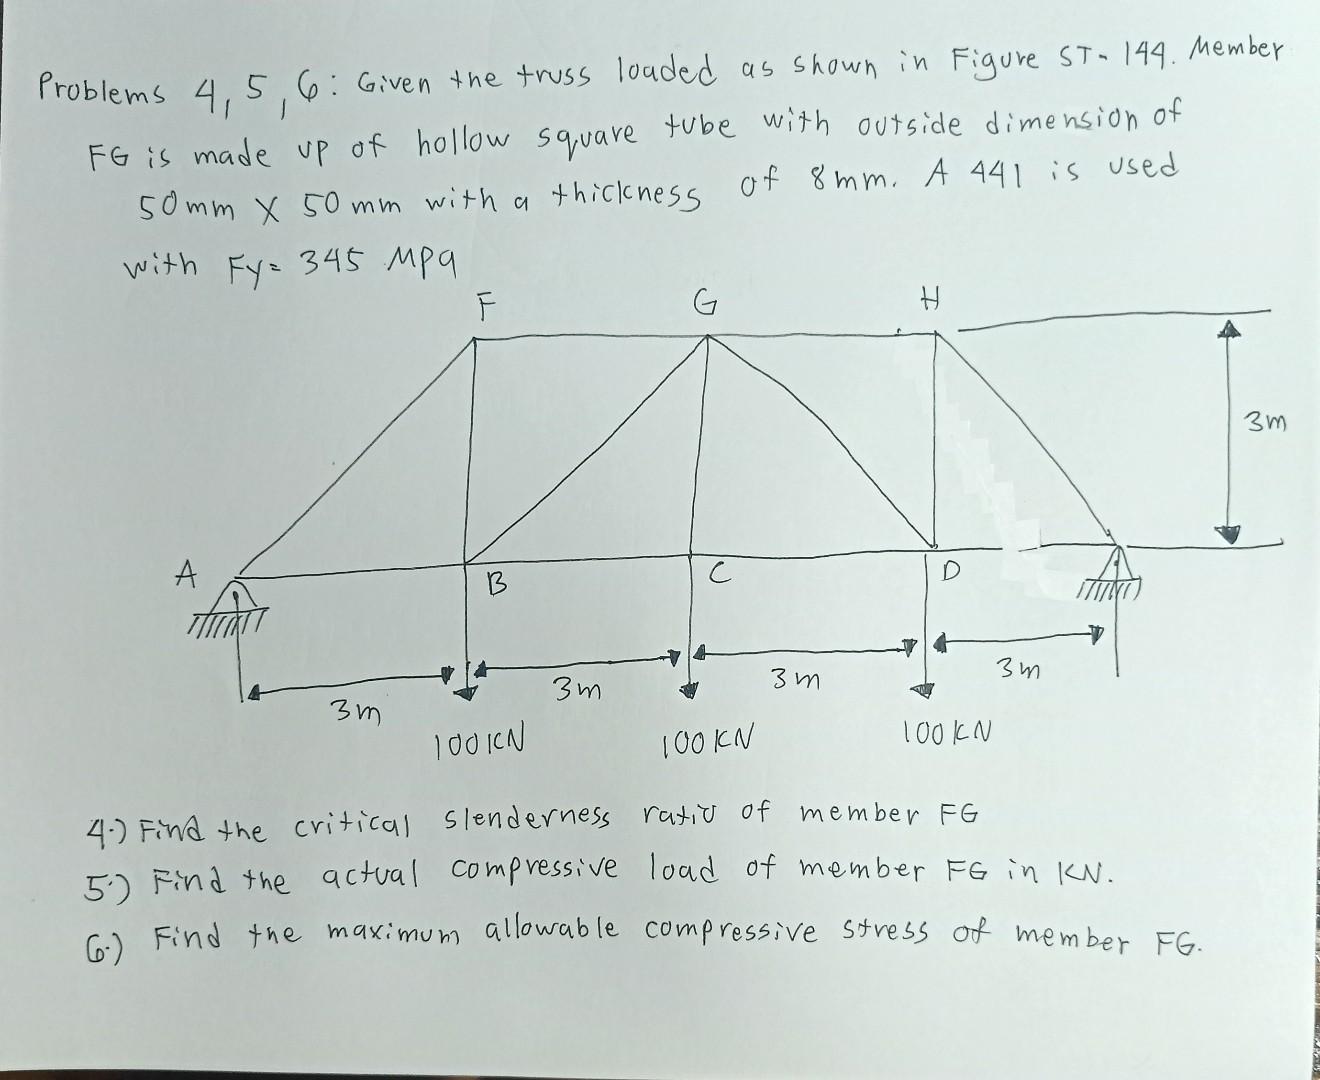 Problems 4, 5, 6: Given the truss loaded as shown in Figure ST-144. Member
FG is made up of hollow square tube with outside dimension of
50mm X 50mm with a thickness of 8mm. A 441 is used
with Fy= 345 Mpa
F G H
3m
A B C D
3m 3m 3m 3m
100KN 100KN 100KN
4.) Find the critical slenderness ratio of member FG
5.) Find the actual compressive load of member FG in KN.
6.) Find the maximum allowable compressive stress of member FG.